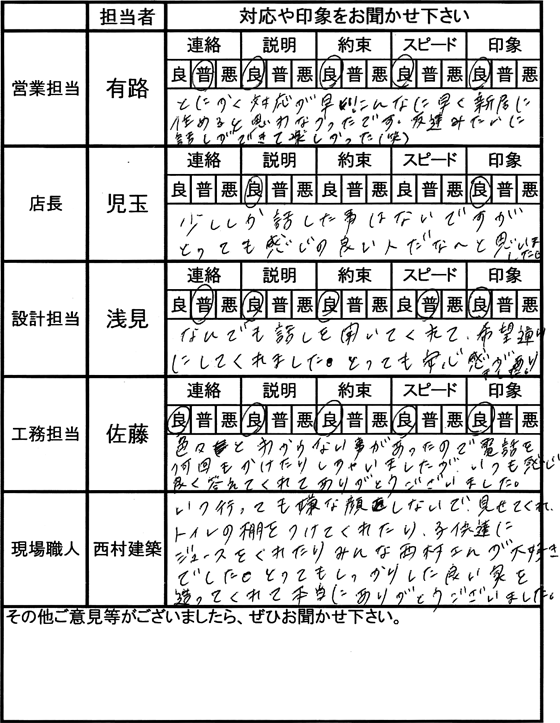 担当者 対応や印象をお聞かせ下さい
営業担当 有路
連絡 説明 約束 スピード 印象
良 普 悪 良 普 悪 良 普 悪 良 普 悪 良 普 悪
とにかく対応が早い!こんなに早く新居に
住めると思わなかったです。友達みたいに
話しができて楽しかった(笑)
店長 児玉
連絡 説明 約束 スピード 印象
良 普 悪 良 普 悪 良 普 悪 良 普 悪 良 普 悪
少ししか話した事はないですが
とっても感じの良い人だな〜と思いました。
設計担当 浅見
連絡 説明 約束 スピード 印象
良 普 悪 良 普 悪 良 普 悪 良 普 悪 良 普 悪
なんでも話しを聞いてくれて、希望通り
にしてくれました。とっても安心感が
工務担当 佐藤
連絡 説明 約束 スピード 印象
良 普 悪 良 普 悪 良 普 悪 良 普 悪 良 普 悪
色々とわからない事があったので電話を
何回もかけたりしちゃいましたが、いつも感じ
良く答えてくれてありがとうございました。
現場職人 西村建築
いつ行っても嫌な顔しないで、見せてくれ、
トイレの棚をつけてくれたり、子供達に
ジュースをくれたりみんな西村さんが大好き
でした。とってもしっかりした良い家を
造ってくれて本当にありがとうございました。
その他ご意見等がございましたら、ぜひお聞かせ下さい。